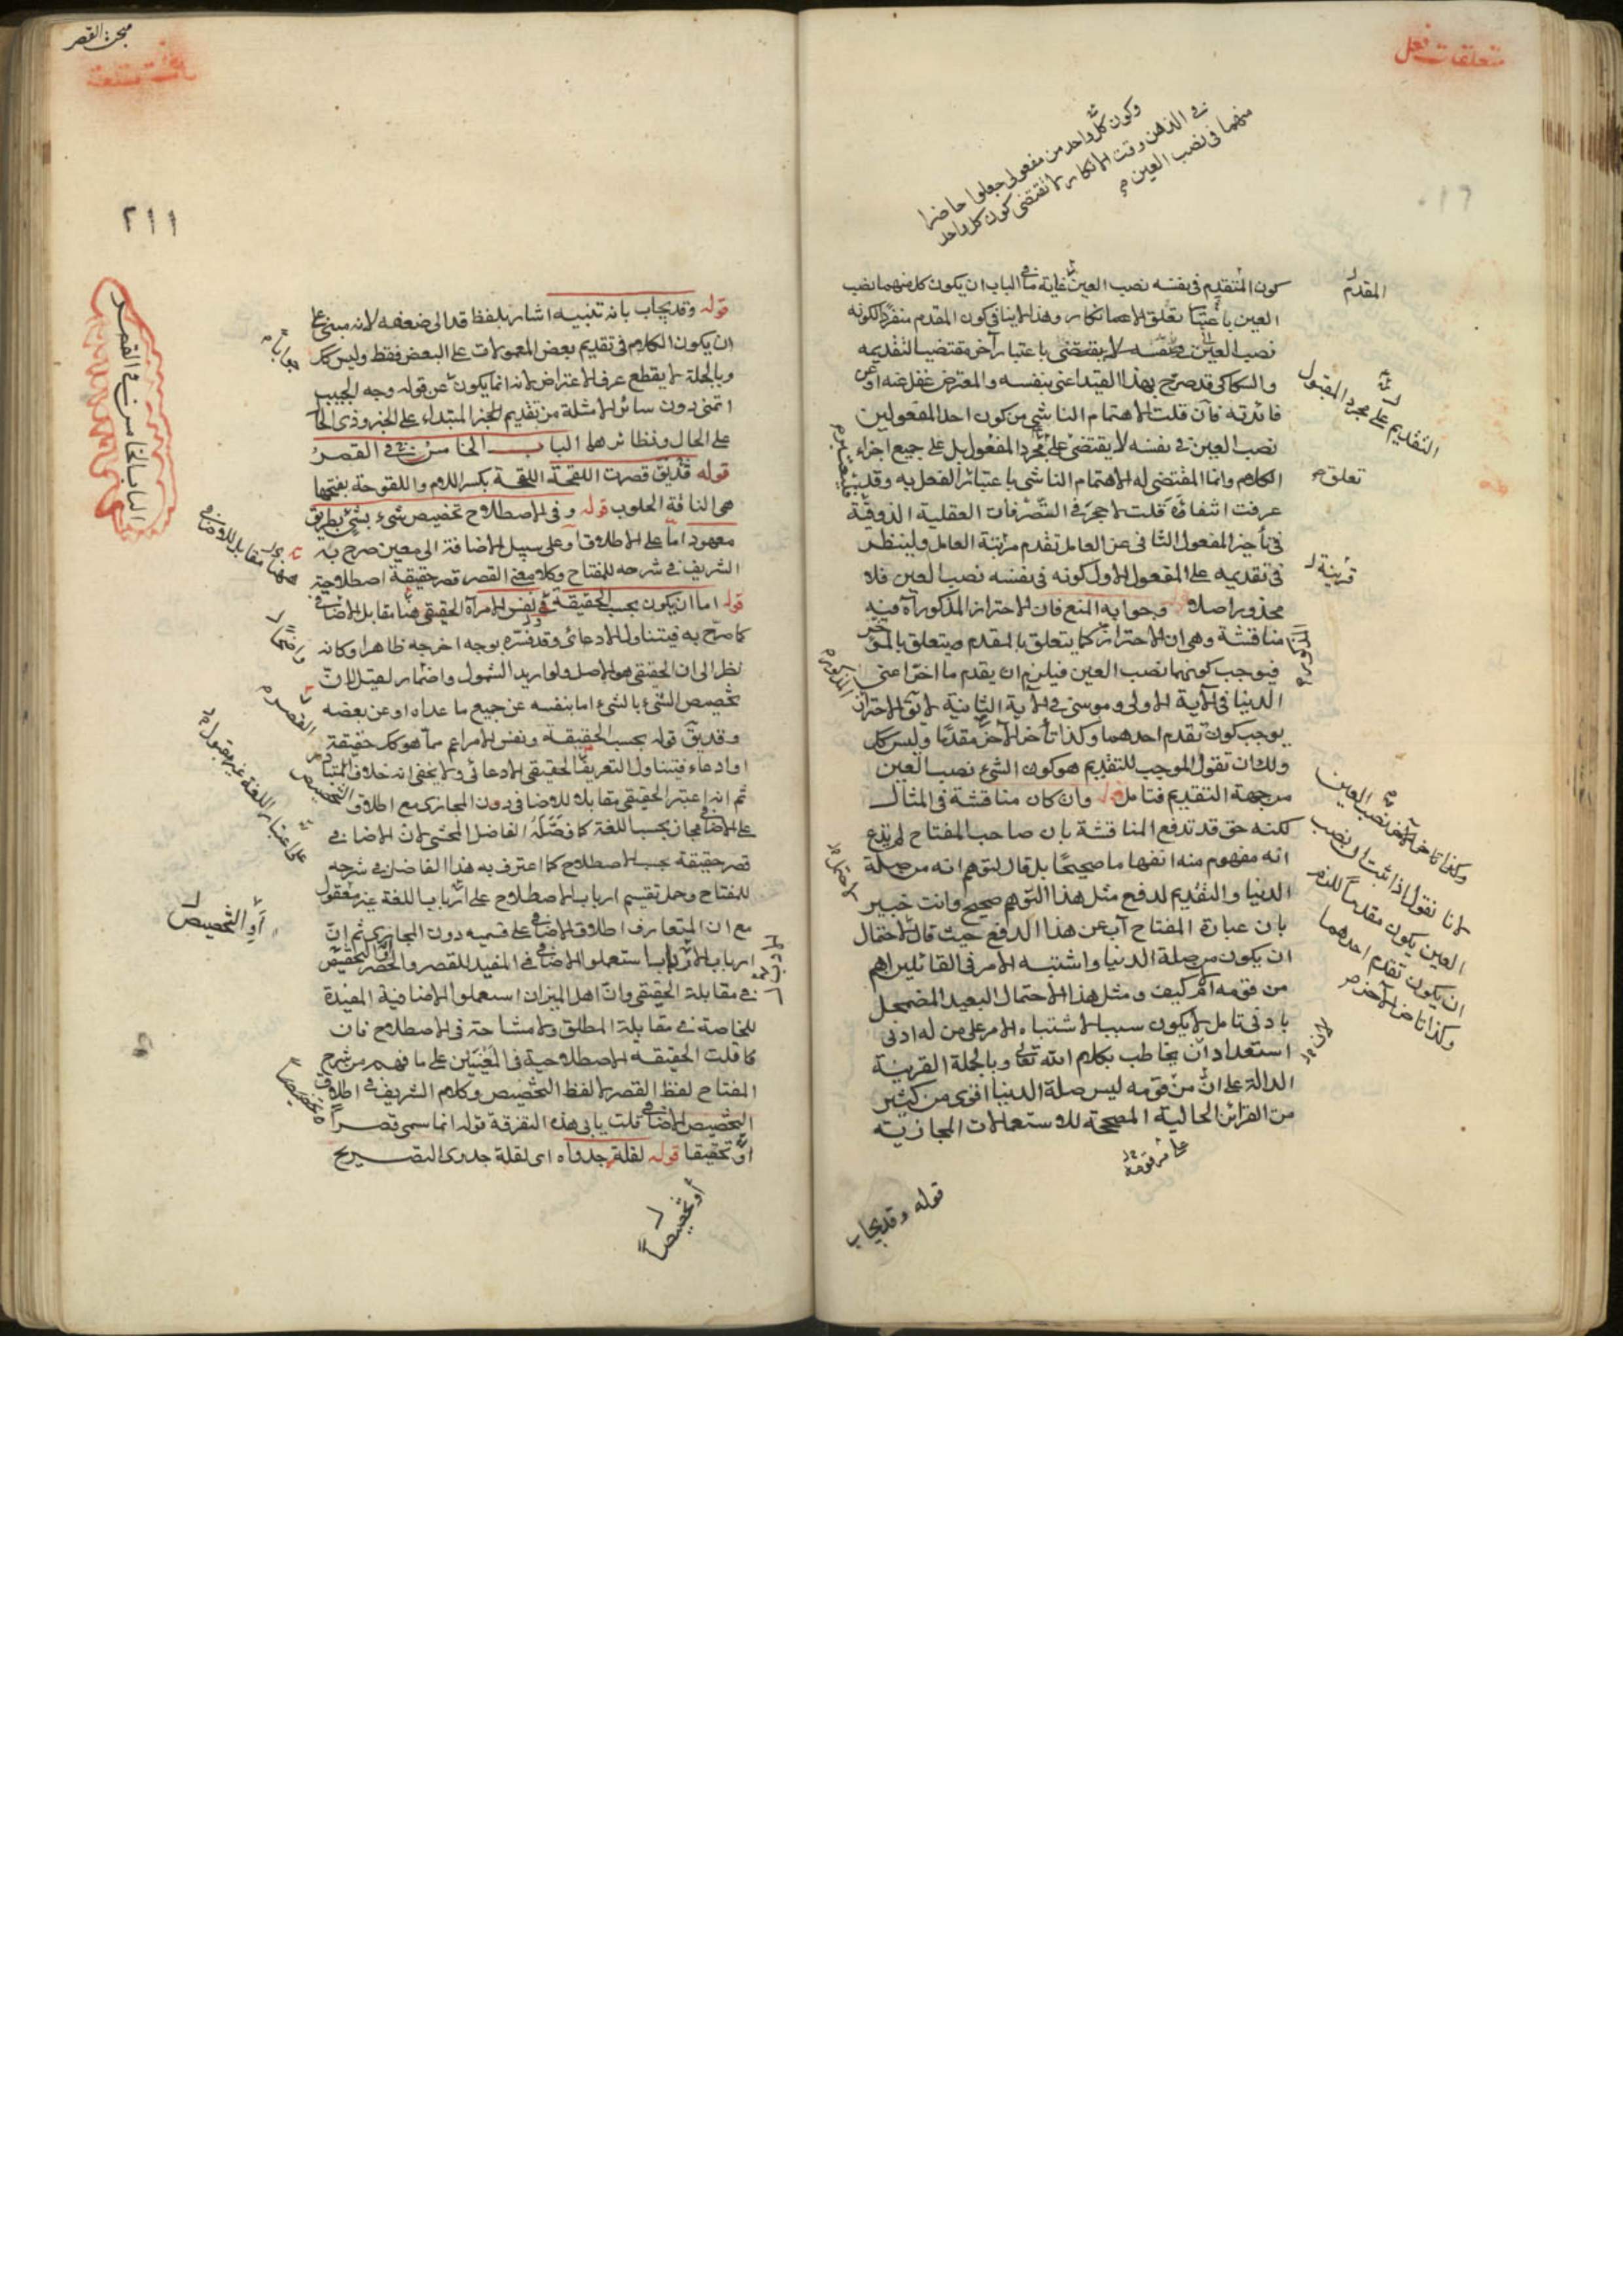 متعلقات فعل
وكون كل واحد من مفعولى جعلوا حاضرا
فى الذهن وقت الانكار لا تقتضى كون كل واحد
منهما فى نصب العين
كون المتقدم فى نفسه نصب العين غاية ما فى الباب ان يكون كل منهما نصب
العين باعتبار تعلق الانكار وهذا لا ينافى كون المقدم منفردا لكونه
نصب العين فى نفسه لا يقتضى باعتبار آخر مقتضيا لتقديمه
والسكاكى قد صرح بهذا القيد اعنى بنفسه والمعترض غفل عنه او عن
فائدته فان قلت الاهتمام الناشى من كون احد المفعولين
نصب العين فى نفسه لا يقتضى على مجرد المفعول بل على جميع اجزاء
الكلام وانما المقتضى له الاهتمام الناشى باعتبار الفعل به وقد
عرفت انتفاؤه قلت لا حجر فى التصرفات العقلية الذوقية
فى تأخير المفعول الثانى عن العامل تقدم مرتبة العامل ولينظر
فى تقديمه على المفعول الاول كونه فى نفسه نصب العين فلا
محذور اصلا وجوابه المنع فان الاحتراز المذكور آه فيه
مناقشة وهى ان الاحتراز كما يتعلق بالمقدم يتعلق بالمؤخر
فيوجب كونهما نصب العين فيلزم ان يقدم ما اخر اعنى
الدنيا فى الآية الاولى وموسى فى الآية الثانية لا يق الاحتراز
يوجب كون تقدم احدهما وكذا تأخر الآخر مقدما وليس كك
ولك ان تقول الموجب للتقديم هو كون الشئ نصب العين
من جهة التقديم فتامل قوله وان كان مناقشة فى المثال
لكنه حق قد تدفع المناقشة بان صاحب المفتاح لم يدع
انه مفهوم منه انفهاما صحيحا بل قال لتوهم انه من صلة
الدنيا والتقديم لدفع مثل هذا التوهم صحيح وانت خبير
بان عبارة المفتاح آب عن هذا الدفع حيث قال لاحتمال
ان يكون من صلة الدنيا واشتبه الامر فى القائلين اهم
من قومه ام كيف ومثل هذا الاحتمال البعيد المضمحل
بادنى تامل لا يكون سببا لاشتباه الامر على من له ادنى
استعداد ان يخاطب بكلام الله تعالى وبالجملة القرينة
الدالة على ان من قومه ليس صلة الدنيا اقوى من كثير
من القرائن الحالية المصححة للاستعمالات المجازية
قوله وقد يجاب
المقدم
التقديم على مجرد المفعول
تعلق
قرينة
وكذا تاخر الآخر نصب العين
لانا نقول اذا ثبت ان نصب
العين يكون مقدما للنصر
ان يكون تقدم احدهما
وكذا تاخر الآخر
مبحث القصر
٢١١
الباب الخامس فى القصر
قوله وقد يجاب بانه تنبيه اشار بلفظ قد الى ضعفه لانه مبنى على
ان يكون الكلام فى تقديم بعض المعمولات على البعض فقط وليس كك
وبالجملة لا يقطع عرق الاعتراض لانه انما يكون عن قوله وجه الجيب
اتمنى دون سائر الامثلة من تقديم الخبر المبتداء على الخبر وذى الحا
على الحال ونظائرهما الباب الخامس فى القصر
قوله قد يق قصرت اللقحة اللقحة بكسر اللام واللقوحة بفتحها
هى الناقة الحلوب قوله وفى الاصطلاح تخصيص شىء بشئ بطريق
معهود اما على الاطلاق او على سبيل الاضافة الى معين صرح به
الشريف فى شرحه للمفتاح وكلا معنى القصر قصر حقيقة اصطلاحية
قوله اما ان يكون بحسب الحقيقة فى نفس الامر آه الحقيقى هنا مقابل الاضافى
كما صرح به فيتناول الادعائى وقد فسره بوجه اخرجه ظاهرا وكانه
نظر الى ان الحقيقى هو الاصل ولو اريد الشمول واضمار لقيل لان
تخصيص الشئ بالشئ اما بنفسه عن جميع ما عداه او عن بعضه
وقد يق قوله بحسب الحقيقة ونفس الامر اعم مما هو كك حقيقة
او ادعاء فيتناول التعريف الحقيقى الادعائى ولا يخفى انه خلاف المتبادر
ثم انه اعتبر الحقيقى مقابلا للاضافى دون المجازى مع اطلاق
على الاضافى مجاز بحسب اللغة كما فصله الفاضل المحشى لان الاضافى
قصر حقيقة بحسب الاصطلاح كما اعترف به هذا الفاضل فى شرحه
للمفتاح وحمل تقسيم ارباب الاصطلاح على ارباب اللغة غير معقول
مع ان المتعارف اطلاق الاضافى على قسميه دون المجازى ثم ان
فى مقابلة الحقيقى وان اهل الميزان استعملوا الاضافية المفيدة
للخاصة فى مقابلة المطلق ولا مشاحة فى الاصطلاح فان
كا قلت الحقيقة الاصطلاحية فى المعنيين على ما فهم من شرح
المفتاح لفظ القصر لا لفظ التخصيص وكلام الشريف فى اطلاق
التخصيص الاضافى قلت يابى هذه التفرقة قوله انما سمى قصرا
او تحقيقا قوله لقلة جدواه اى لقلة جدوى التصريح
او تخصيصا
او التخصيص